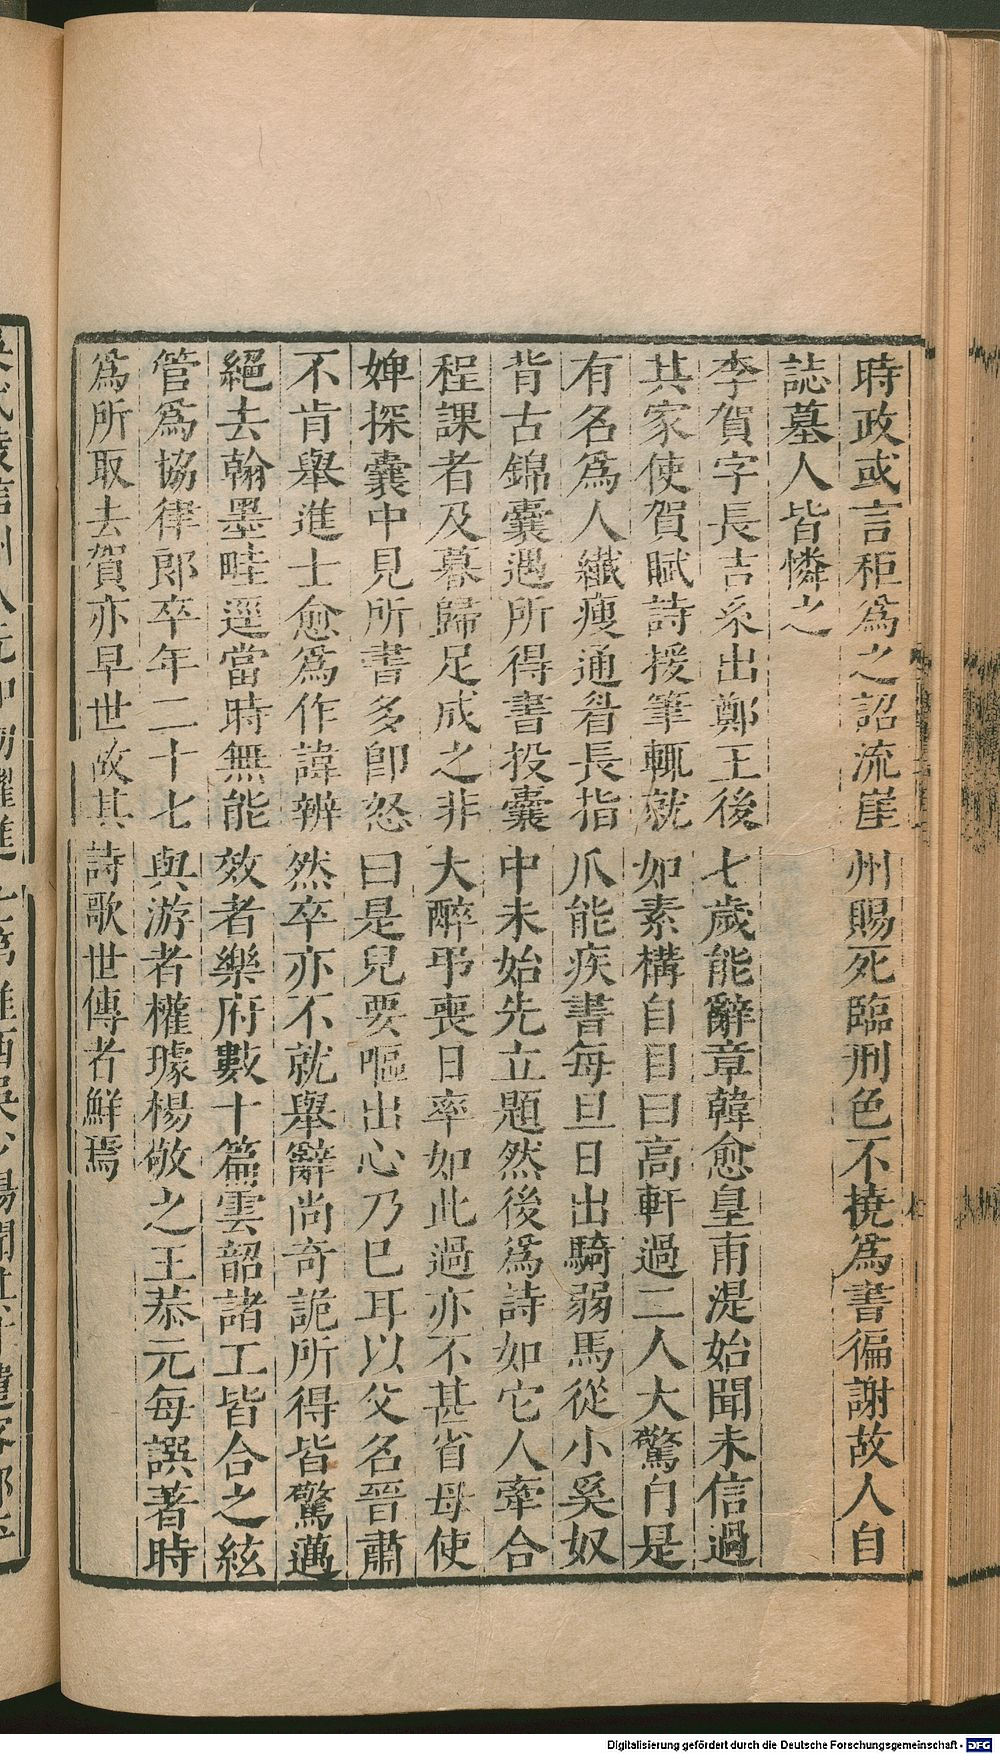 時政或言秬爲之詔流崖州賜死臨刑色不撓爲書徧謝故人自
誌墓人皆憐之
李賀字長吉系出鄭王後七歲能辭章韓愈皇甫湜始聞未信過
其家使賀賦詩援筆輒就如素構自目曰高軒過二人大驚自是
有名爲人纖瘦通眉長指爪能疾書每旦日出騎弱馬從小奚奴
背古錦囊遇所得書投囊中未始先立題然後爲詩如它人牽合
程課者及暮歸足成之非大醉弔喪日率如此過亦不甚省母使
婢探囊中見所書多卽怒曰是兒要嘔出心乃已耳以父名晉肅
不肯舉進士愈爲作諱辨然卒亦不就舉辭尚奇詭所得皆驚邁
絕去翰墨畦逕當時無能效者樂府數十篇雲韶諸工皆合之絃
管爲協律郎卒年二十七與游者權璩楊敬之王恭元每譔著時
爲所取去賀亦早世故其詩歌世傳者鮮焉
Digitalisierung gefördert durch die Deutsche Forschungsgemeinschaft - DFG